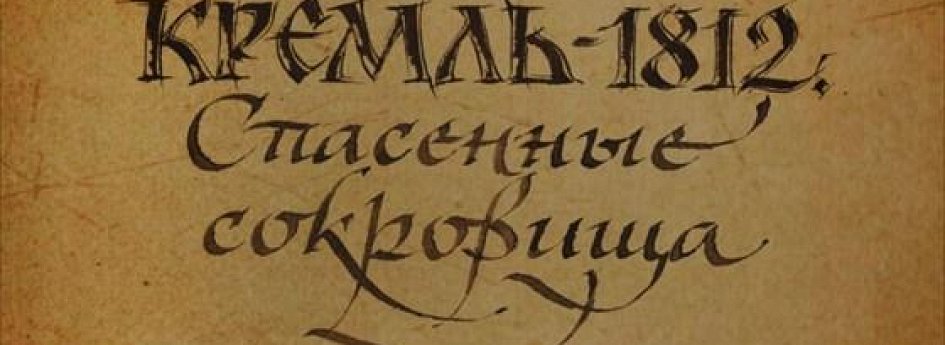 КРЕМЛЬ-1812.
Спасенные
сокровища